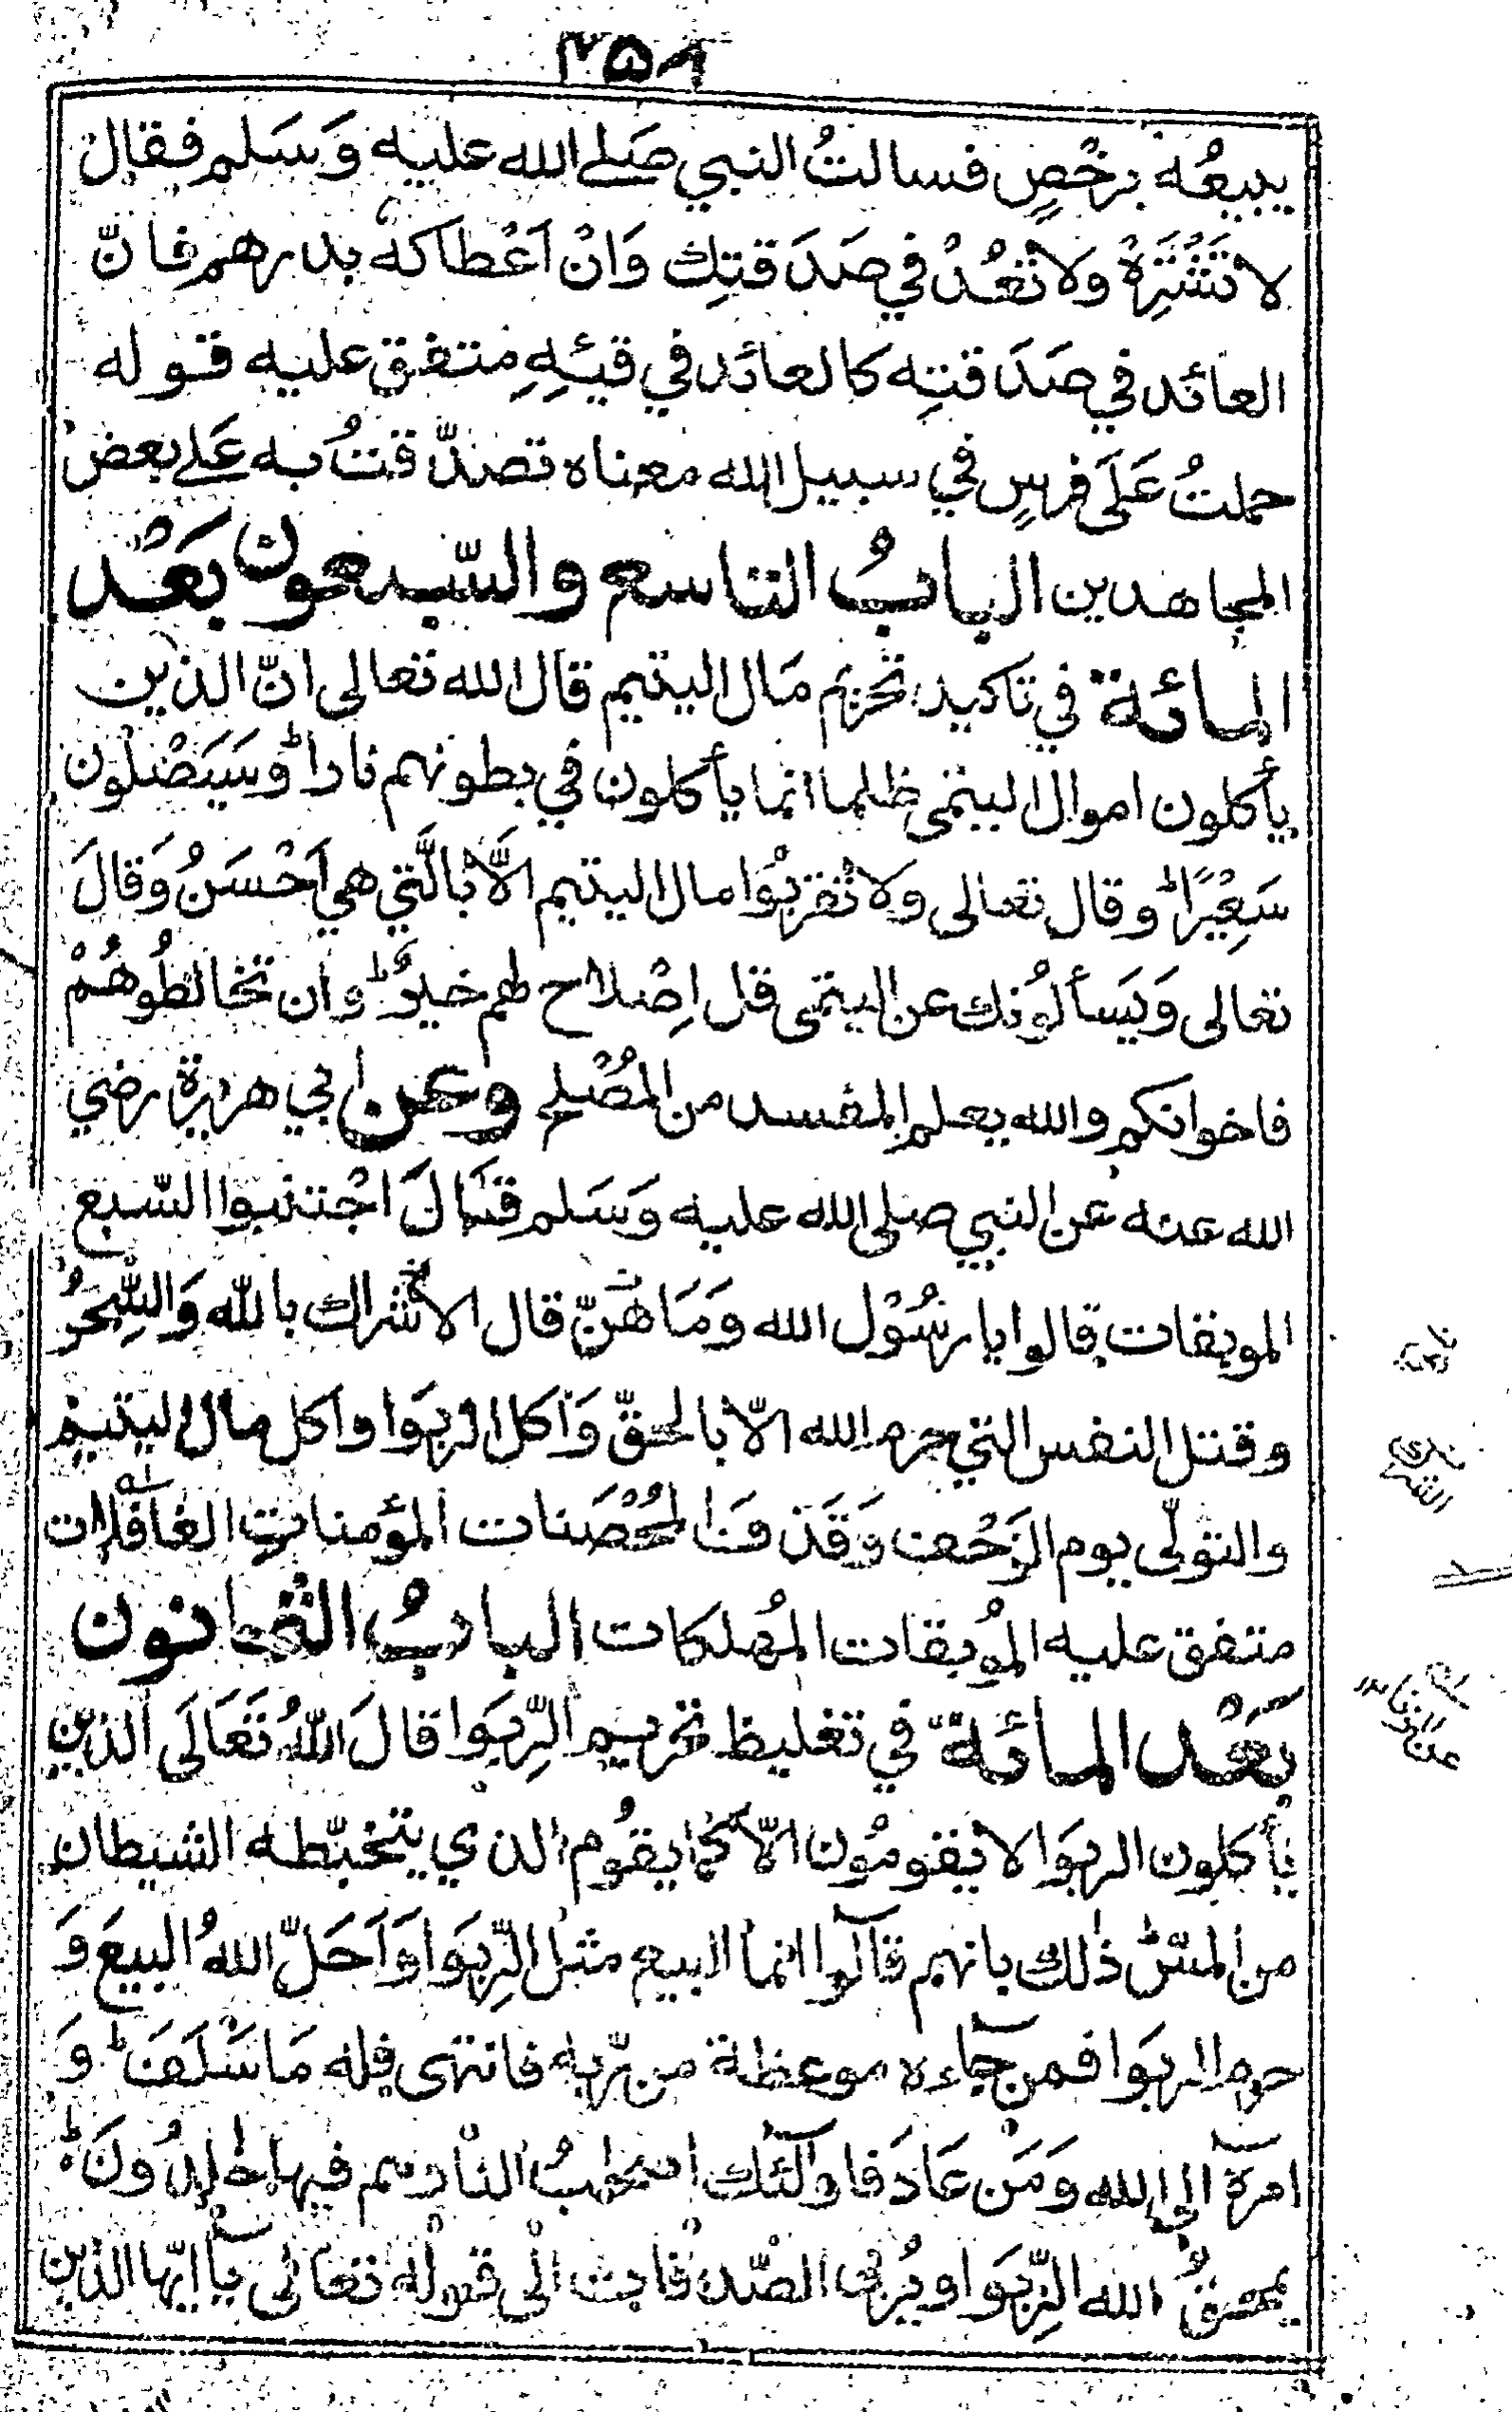 ٢٥٨
يبيعُه برُخْصٍ فسالتُ النبي صَلى الله عليه وَسَلم فقال
لا تَشْتَرِهْ ولا تَعُدْ في صَدَقتِك وَانْ اَعْطاكهُ بدرهم فانّ
العائد في صَدَقتِه كالعائد في قيئِهِ متفق عليه قوله
حملتُ عَلَى فرسٍ في سبيل الله معناه تصدّقتُ به عَلى بعض
المجاهدين البابُ التاسع والسّبعون بَعْد
المائة في تاكيد تحريم مَال اليتيم قال الله تعالى انّ الذين
يأكلون اموال اليتمى ظلما انما يأكلون في بطونهم نارا ط وسَيَصْلَون
سَعِيْرًا ط وقال تعالى ولا تقرَبُوا مال اليتيم الّا بالَّتي هي اَحْسَنُ وَقالَ
تعالى وَيَسألُونك عن اليتمى قل اِصْلاح لهم خيرٌ ط وان تخالطُوهُمْ
فاخوانكم والله يعلم المفسد من المُصْلح وعن ابي هريرة رضي
الله عنه عن النبي صلى الله عليه وَسَلم قَالَ اجْتنبوا السّبع
الموبقات قالوا يا رسُوْل الله وَمَا هنّ قال الاشراك بالله وَالسِّحْرُ
وقتل النفس التي حرم الله الّا بالحقّ وَاكل الربوَا واكل مال اليتيم
والتولّى يوم الزَحْف وَقَذف المُحْصَنات المؤمنات الغافلات
متفق عليه المُوبقات المُهلكات البابُ الثمانون
بَعْد المائة في تغليظ تحريم الرِّبوَا قالَ اللهُ تَعَالَى الذين
يأكلون الربوَا لا يقومُون الّا كما يقُوم الذي يتخبّطه الشيطان
من المسّ ط ذٰلك بانهم قالوٓا انما البيع مثل الرِّبوَا وَاَحَلّ اللهُ البيعَ وَ
حرم الربوَا فمن جآءه موعظة من رّبه فانتهى فله مَا سَلَفَ ط وَ
امره الى الله وَمَن عَادَ فاولٓئك اصحٰبُ النار هم فيها خٰلِدُونَ ط
يمحقُ الله الرِّبوَا ويُربى الصّدقات الى قوله تعالى يآ ايّها الذين